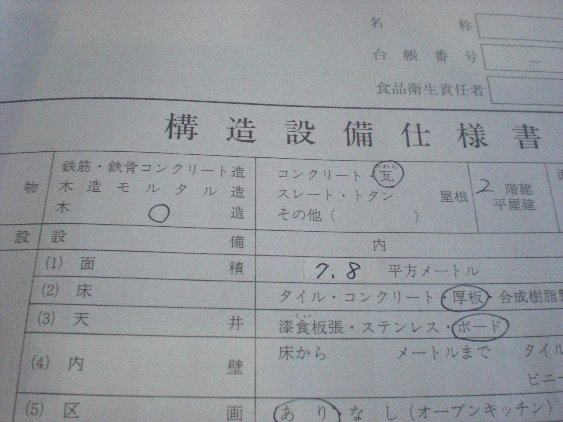 名称
台帳番号
食品衛生責任者
構造設備仕様書
物 鉄筋・鉄骨コンクリート造 コンクリート・瓦 屋根 2 階建
木造モルタル造 スレート・トタン 平屋建
木造 その他( )
設 設備 内
(1) 面積 7.8 平方メートル
(2) 床 タイル・コンクリート・厚板・合成樹脂
(3) 天井 漆食板張・ステンレス・ボード
くい
(4) 内壁 床から メートルまで タイル
ビニー
(5) 区画 あり・なし(オープンキッチン)